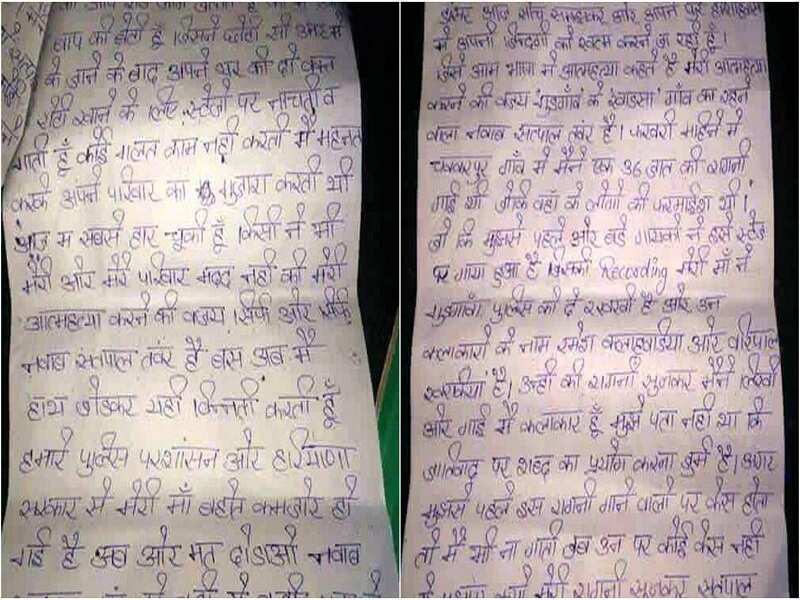 बाप की बेटी हूँ। जिसने छोटी सी उम्र में
के जाने के बाद अपने घर की दो वक्त
रोटी खाने के लिए स्टेजो पर नाचती व
गाती हूँ कोई गलत काम नहीं करती मैं मेहनत
करके अपने परिवार का गुजारा करती थी
आज म सबसे हार चुकी हूँ। किसी ने भी
मेरी और मेरे परिवार मदद नहीं की मेरी
आत्महत्या करने की वजय सिर्फ और सिर्फ
नवाब सतपाल तवंर है बस अब मैं
हाथ जोडकर यही विनती करती हूँ
हमारे पुलिस परशासन और हरियाणा
सरकार से मेरी माँ बहोत कमजोर हो
गई है अब और मत दोडाओ नवाब
आज सोच समझकर और अपने पुरे होशोहवास
में अपनी जिन्दगी को खत्म करने जा रही हूँ।
जिसे आम भाषा में आत्महत्या कहते है मेरी आत्महत्या
करने की वजय गुडगाँव के खाडसा गाँव का रहने
वाला नवाब सतपाल तवंर है। फरवरी माहिने में
चक्करपुर गाँव में मैंने एक 36 जात की रागनी
गाई थी जोकि वहाँ के लोगो की फरमाईश थी।
जो कि मुझसे पहले और बडे गायको ने इसे स्टेज
पर गाया हुआ है जिसकी Recording मेरी माँ ने
गुडगावां पुलिस को दे रखखी है और उन
कलाकारो के नाम रमेश कलाहवाडिया और वरिपाल
खरकिया है। उन्ही की रागनी सुनकर मैंने लिखी
और गाई मैं कलाकार हूँ मुझे पता नहीं था कि
जातिवाद पर शब्द का प्रयोग करना जुर्म है। अगर
मुझसे पहले इस रागनी गाने वालो पर केस होता
तो मैं भी ना गाती जब उन पर कोई केस नही
मेरी रागनी सुनकर सतपाल